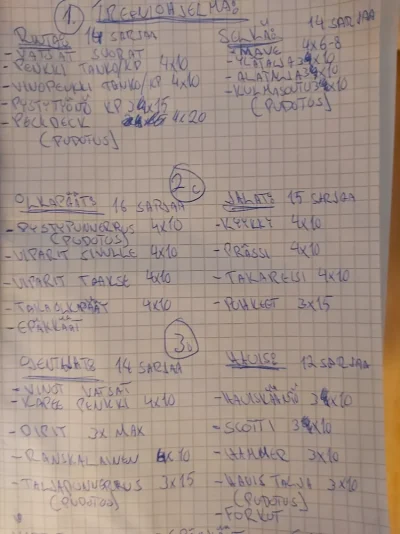 1. TREENIOHJELMA
RINTA 14 SARJAA
- VATSAT SUORAT
- PENKKI TANKO/KP 4x10
- VINOPENKKI TANKO/KP 4x10
- PYSTYTYÖNTÖ KP 3x15
- PECKDECK 4x20
(PUDOTUS)
SELKÄ 14 SARJAA
- MAVE 4x6-8
- YLÄTALJA 3x10
- ALATALJA 3x10
- KULMASOUTU 3x10
(PUDOTUS)
2.
OLKAPÄÄT 16 SARJAA
- PYSTYPUNNERRUS 4x10
(PUDOTUS)
- VIPARIT SIVULLE 4x10
- VIPARIT TAAKSE 4x10
- TAKAOLKAPÄÄT 4x10
- EPÄKKÄÄT
JALAT 15 SARJAA
- KYYKKY 4x10
- PRÄSSI 4x10
- TAKAREISI 4x10
- POHKEET 3x15
3.
OJENTAJAT 14 SARJAA
- VINOT VATSAT
- KAPEE PENKKI 4x10
- DIPIT 3x MAX
- RANSKALAINEN 4x10
- TALJAPUNNERRUS 3x15
(PUDOTUS)
HAUIS 12 SARJAA
- HAUISKÄÄNTÖ 3x10
- SCOTTI 3x10
- HAMMER 3x10
- HAUIS TALJA 3x10
(PUDOTUS)
- FORKUT